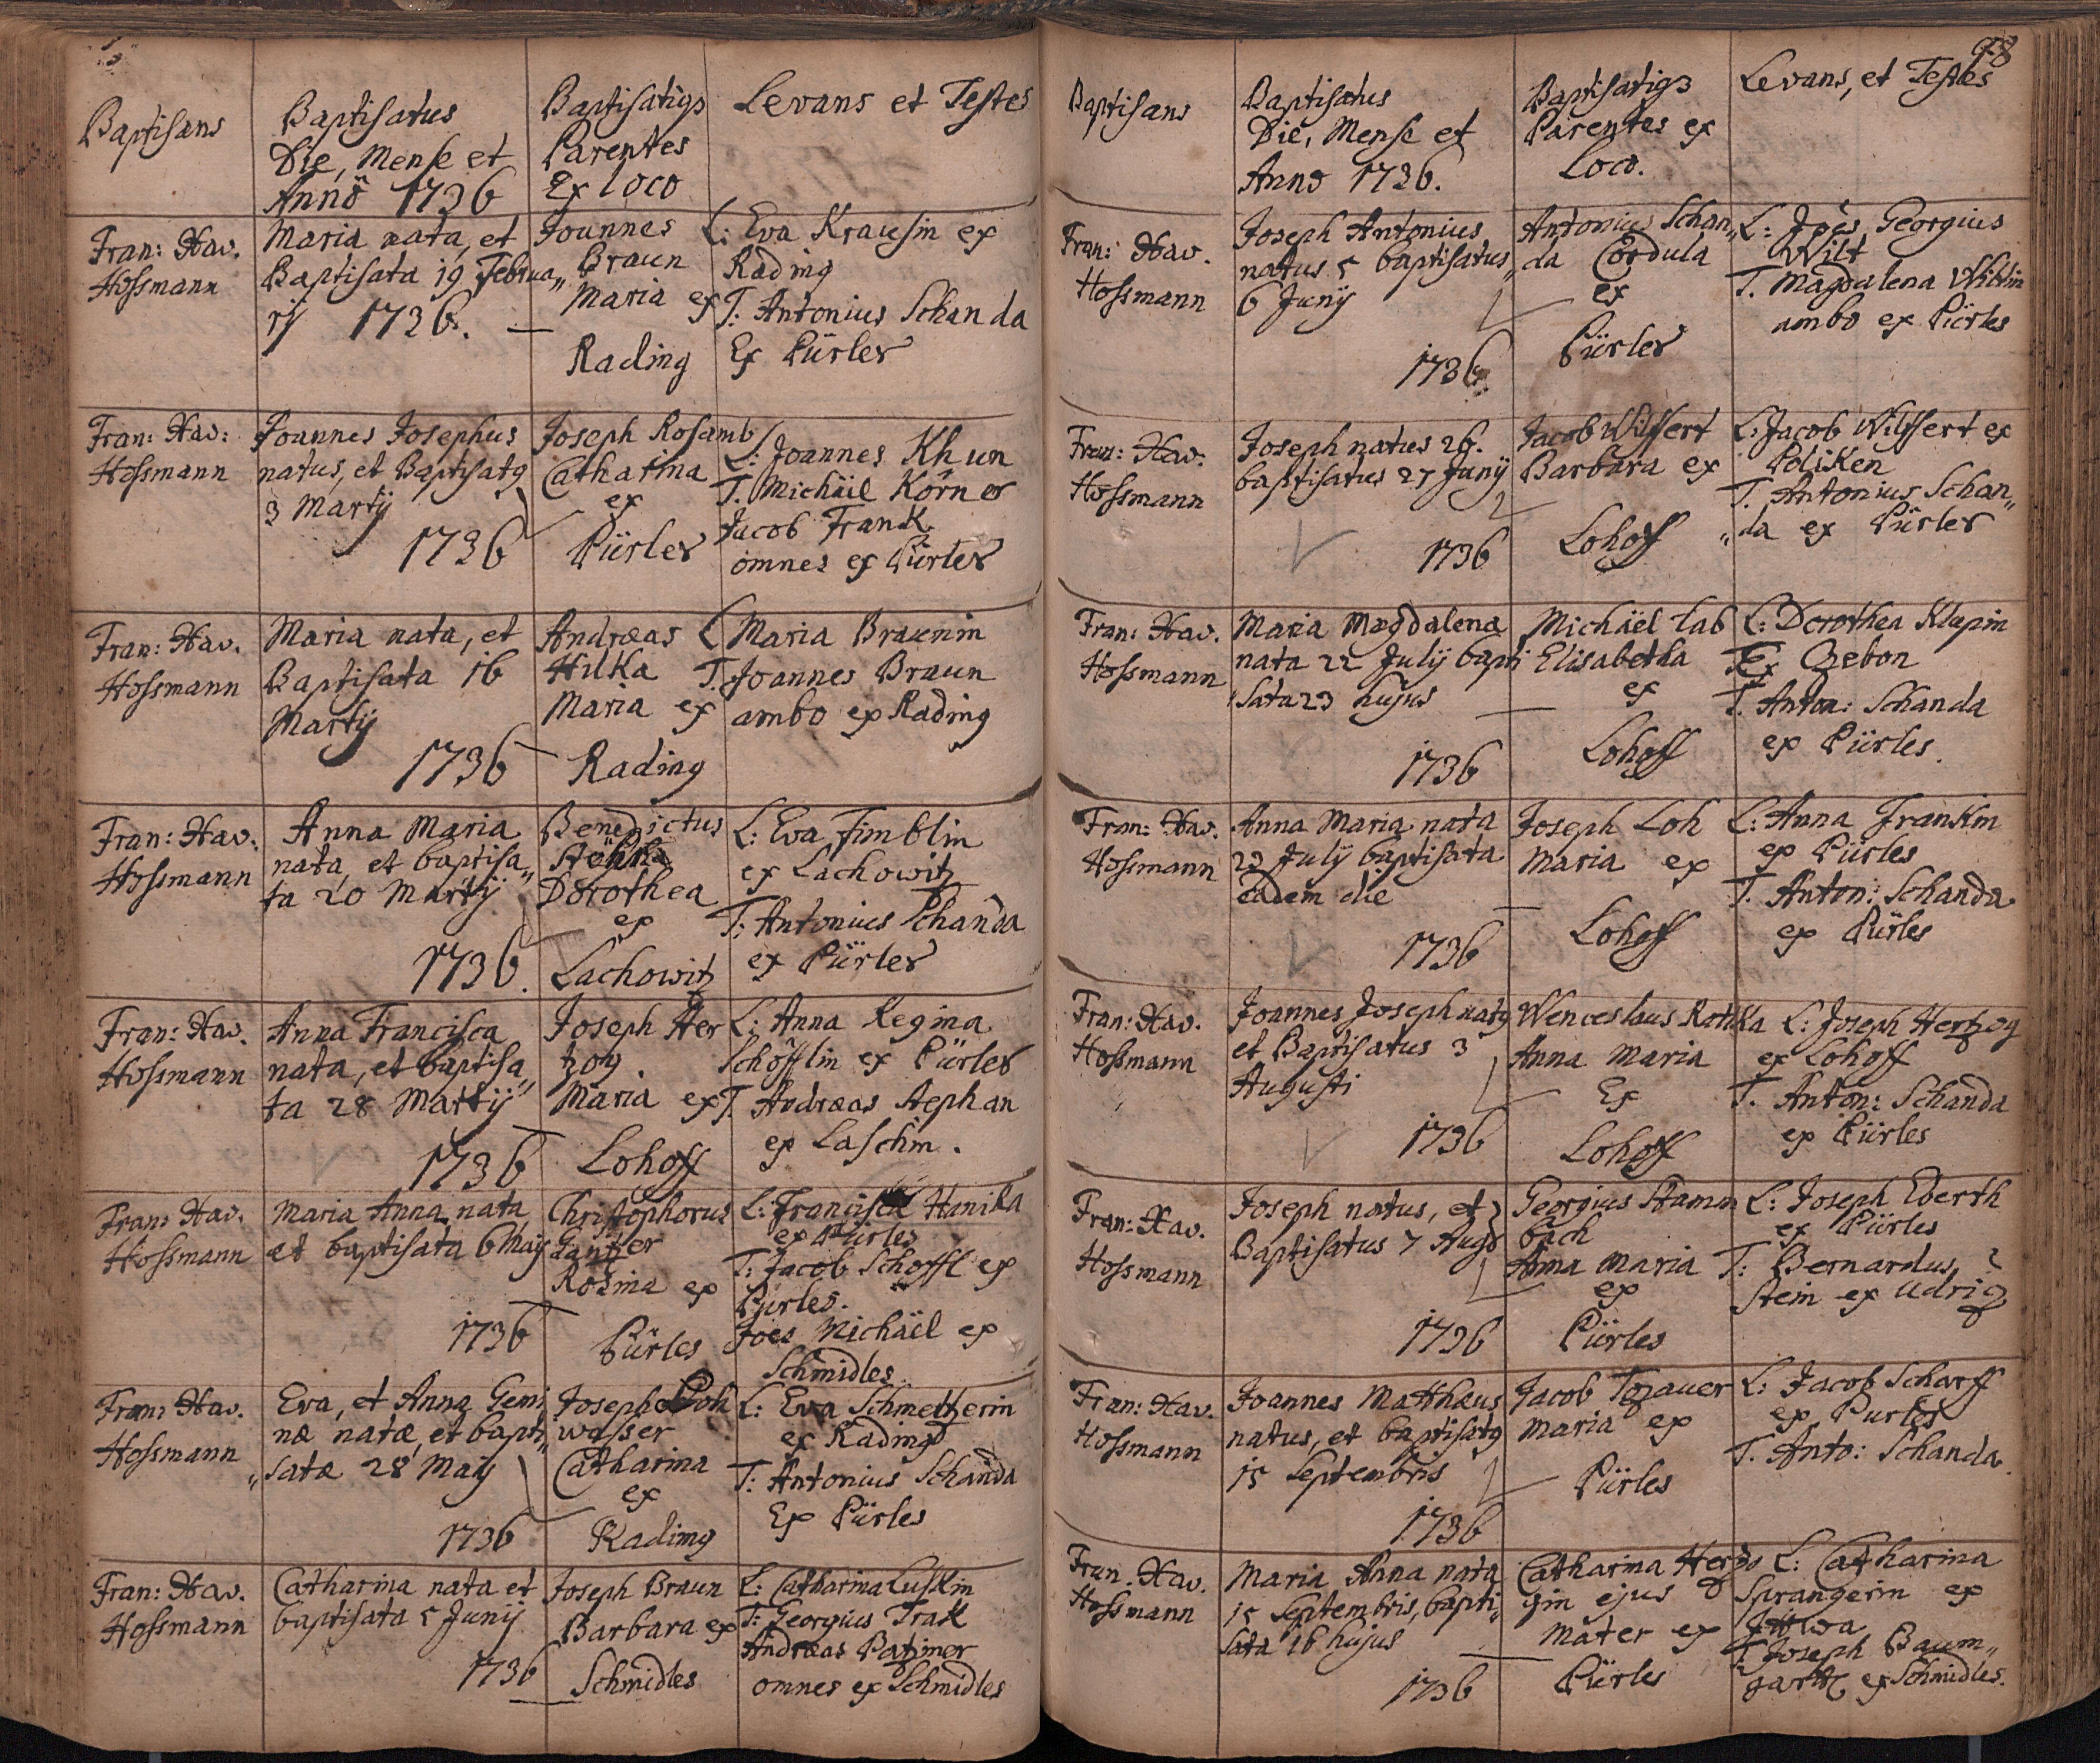 Baptisans
Baptisatus
Die, Mense et
Anno 1736
Baptisatig
Parentes
Ex loco
Levans et Testes
Fran: Xav.
Hossmann
Maria nata, et
Baptisata 19 Februa„
rij 1736.
Joannes
Braun
Maria ex
Rading
L: Eva Krausin ex
Rading
T: Antonius Schanda
Ex Pürles
Fran: Xav:
Hossmann
Joannes Josephus
natus, et Baptisatg
3 Martij
1736
Joseph Rosamb
Catharina
ex
Pürles
L: Joannes Khun
T. Michäil Körner
Jacob Frank
omnes ex Pürles
Fran: Xav.
Hossmann
Maria nata, et
Baptisata 16
Martij
1736
Andræas
Hilka
Maria ex
Rading
L Maria Braunin
T. Joannes Braun
ambo ex Rading
Fran: Xav:
Hossmann
Anna Maria
nata, et baptisa„
ta 20 Martij
1736.
Benedictus
Dorothea
ex
Lachowitz
L: Eva Fimblin
ex Lachowitz
T: Antonius Schanda
ex Pürles
Fran: Xav.
Hossmann
Anna Francisca
nata, et baptisa„
ta 28 Martij
1736
Joseph Her
tzog.
Maria ex
Lohoff
L: Anna Regina
Schöfflin ex Pürles
T. Andræas Stephan
ex Laschin.
Fran: Xav.
Hossmann
Maria Anna nata
et baptisata 6 Maij
1736
Christophorus
Gantzer
Rosina ex
Pürles
L: Hanika
ex Pürles
T: Jacob Schöffl ex
Pürles.
Joes Michäël ex
Schmidles
Fran: Xav.
Hossmann
Eva, et Anna Gemi
næ natæ, et bapti„
„satæ 28 Maij
1736
Joseph Loh
wasser
Catharina
ex
Rading
L: Eva Schmetterin
ex Rading
T: Antonius Schanda
Ex Pürles
Fran: Xav.
Hossmann
Catharina nata et
baptisata 5 Junij
1736
Joseph Braun
Barbara ex
Schmidles
L: Catharina Luskin
T: Georgius Trak
Andræas
omnes ex Schmidles
98
Baptisans
Baptisatus
Die, Mense et
Anno 1736.
Baptisatig
Parentes ex
Loco.
Levans, et Testes
Fran: Xav.
Hossmann
Joseph Antonius
natus 5 baptisatus
6 Junij
1736.
Antonius Schan„
da Cordula
ex
Pürles
L: Joes Georgius
Wilt
T. Magdalena Wiltin
ambo ex Pürles
Fran: Xav:
Hossmann
Joseph natus 26.
baptisatus 27 Junij
1736
Jacob Wilffert
Barbara ex
Lohoff
L: Jacob Wilffert ex
Poliken
T. Antonius Schan„
„da ex Pürles
Fran: Xav.
Hossmann
Maria Magdalena
nata 22 Julij bapti
sata 23 hujus
1736
Michäël Lab
Elisabetha
ex
Lohoff
L: Dorothea Klapin
Ex Gebon
T. Anton: Schanda
ex Pürles.
Fran: Xav.
Hossmann
Anna Maria nata
23 Julij baptisata
eadem die
1736
Joseph Loh
Maria ex
Lohoff
L: Anna Frankin
ex Pürles
T. Anton: Schanda
ex Pürles
Fran: Xav.
Hossmann
Joannes Joseph natg
et Baptisatus 3
Augusti
1736
Wenceslaus Rottka
Anna Maria
Ex
Lohoff
L: Joseph Hertzog
ex Lohoff
T. Anton: Schanda
ex Pürles
Fran: Xav.
Hossmann
Joseph natus, et
Baptisatus 7 Aug
1736
Georgius Stamm
bach
Anna Maria
ex
Pürles
L: Joseph Eberth
ex Pürles
T: Bernardus
Stein ex Udrig
Fran: Xav.
Hossmann
Joannes Matthæus
natus, et baptisatg
15 Septembris
1736
Jacob Tozauer
Maria ex
Pürles
L: Jacob Scharff
ex Purles
T. Anto: Schanda.
Fran. Xav.
Hossmann
Maria Anna nata
15 Septembris, bapti„
sata 16 hujus
1736
Catharina Hertzo
gin ejus
mater ex
Pürles
L: Catharina
Sprangerin ex
T Joseph Baum„
gartl ex Schmidles.